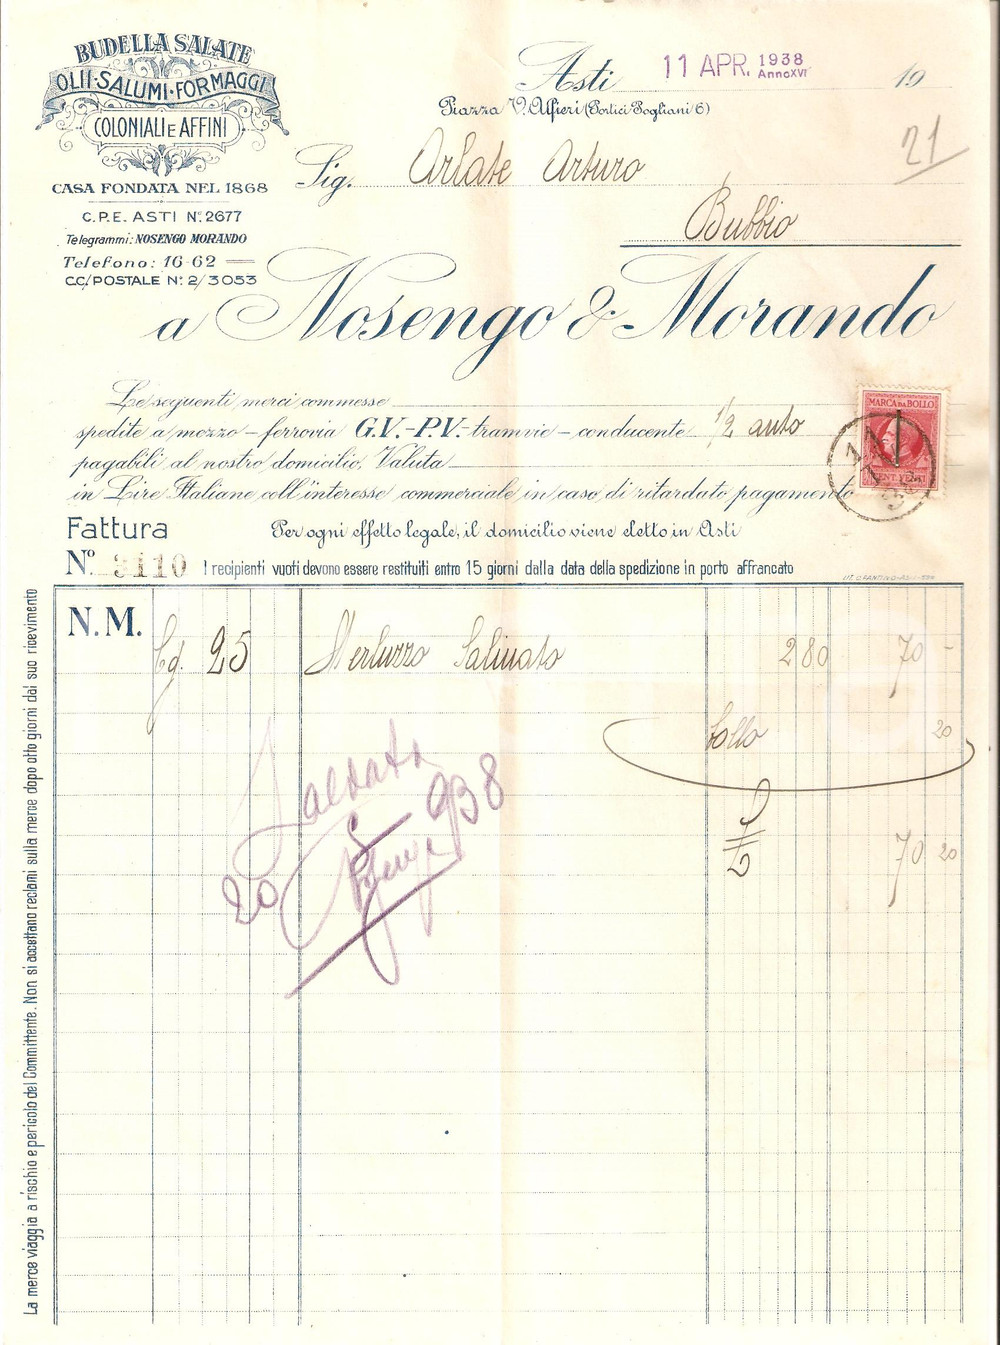 BUDELLA SALATE
OLII·SALUMI·FORMAGGI
COLONIALI E AFFINI
CASA FONDATA NEL 1868
C.P.E. ASTI N.º 2677
Telegrammi: NOSENGO MORANDO
Telefono: 16-62
C.C/POSTALE Nº 2/3053
Asti 11 APR. 1938 Anno XVI 19
Piazza V. Alfieri (Portici Pogliani 6)
21
Sig. Arlate Arturo
Bubbio
a Nosengo & Morando
Le seguenti merci commesse
spedite a mezzo - ferrovia G.V.-P.V.- tramvie - conducente 1/2 auto
pagabili al nostro domicilio, Valuta
in Lire Italiane coll'interesse commerciale in caso di ritardato pagamento
MARCA DA BOLLO
CENT. VENTI
Fattura Per ogni effetto legale, il domicilio viene eletto in Asti
Nº 3110 I recipienti vuoti devono essere restituiti entro 15 giorni dalla data della spedizione in porto affrancato
La merce viaggia a rischio e pericolo del Committente. Non si accettano reclami sulla merce dopo otto giorni dal suo ricevimento
N.M.
Cg. 25 Merluzzo Salinato 280 70 -
bollo 20
£ 70 20
Saldata
20 938